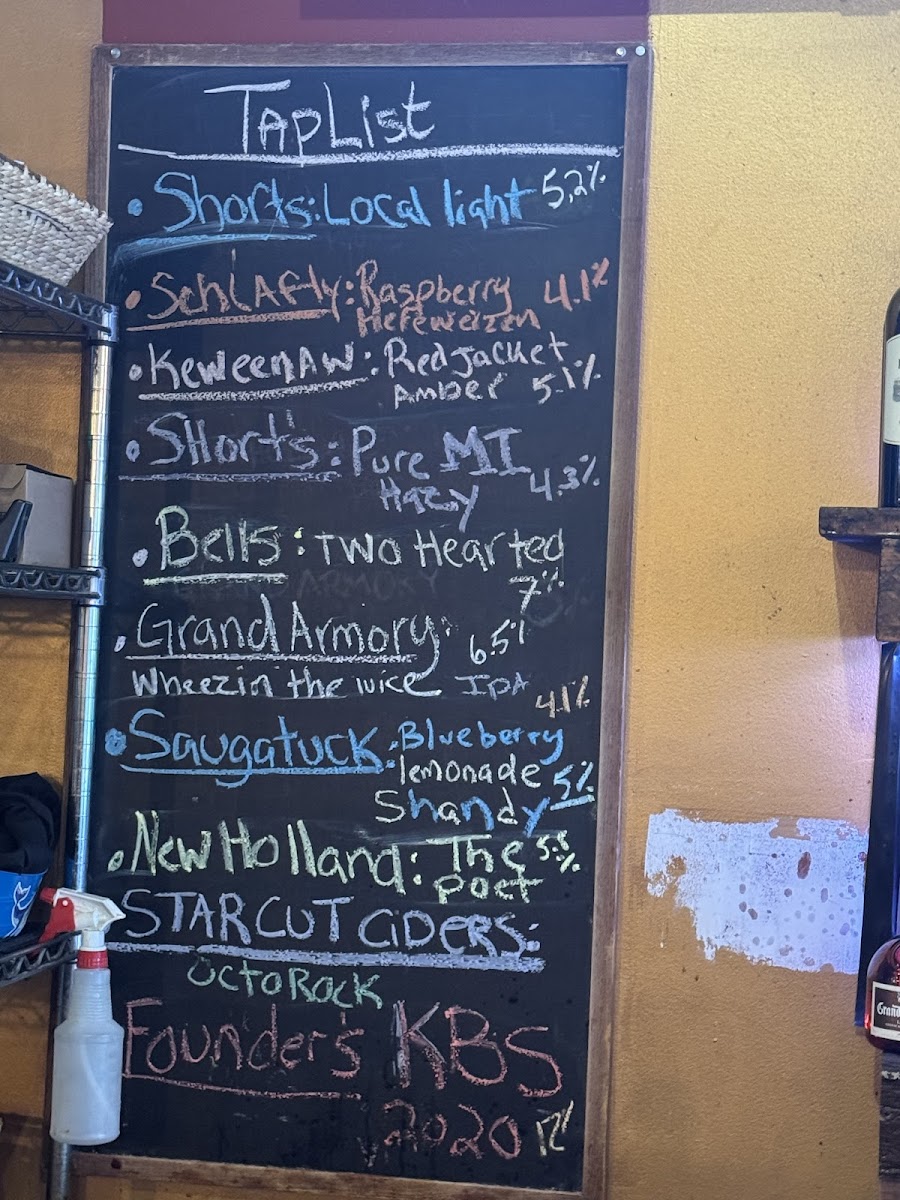 TapList
• Shorts: Local light 5.2%
• Schlafly: Raspberry 4.1%
Hefeweizen
• Keweenaw: Red Jacket
Amber 5.1%
• Short's: Pure MI
Hazy 4.3%
• Bells: Two Hearted
7%
• Grand Armory: 6.5%
Wheezin the juice IPA
4.1%
• Saugatuck: Blueberry
lemonade 5%
Shandy
• New Holland: The
Poet
STARCUT CIDERS:
OctoRock
Founder's KBS
2020 12%
Grand